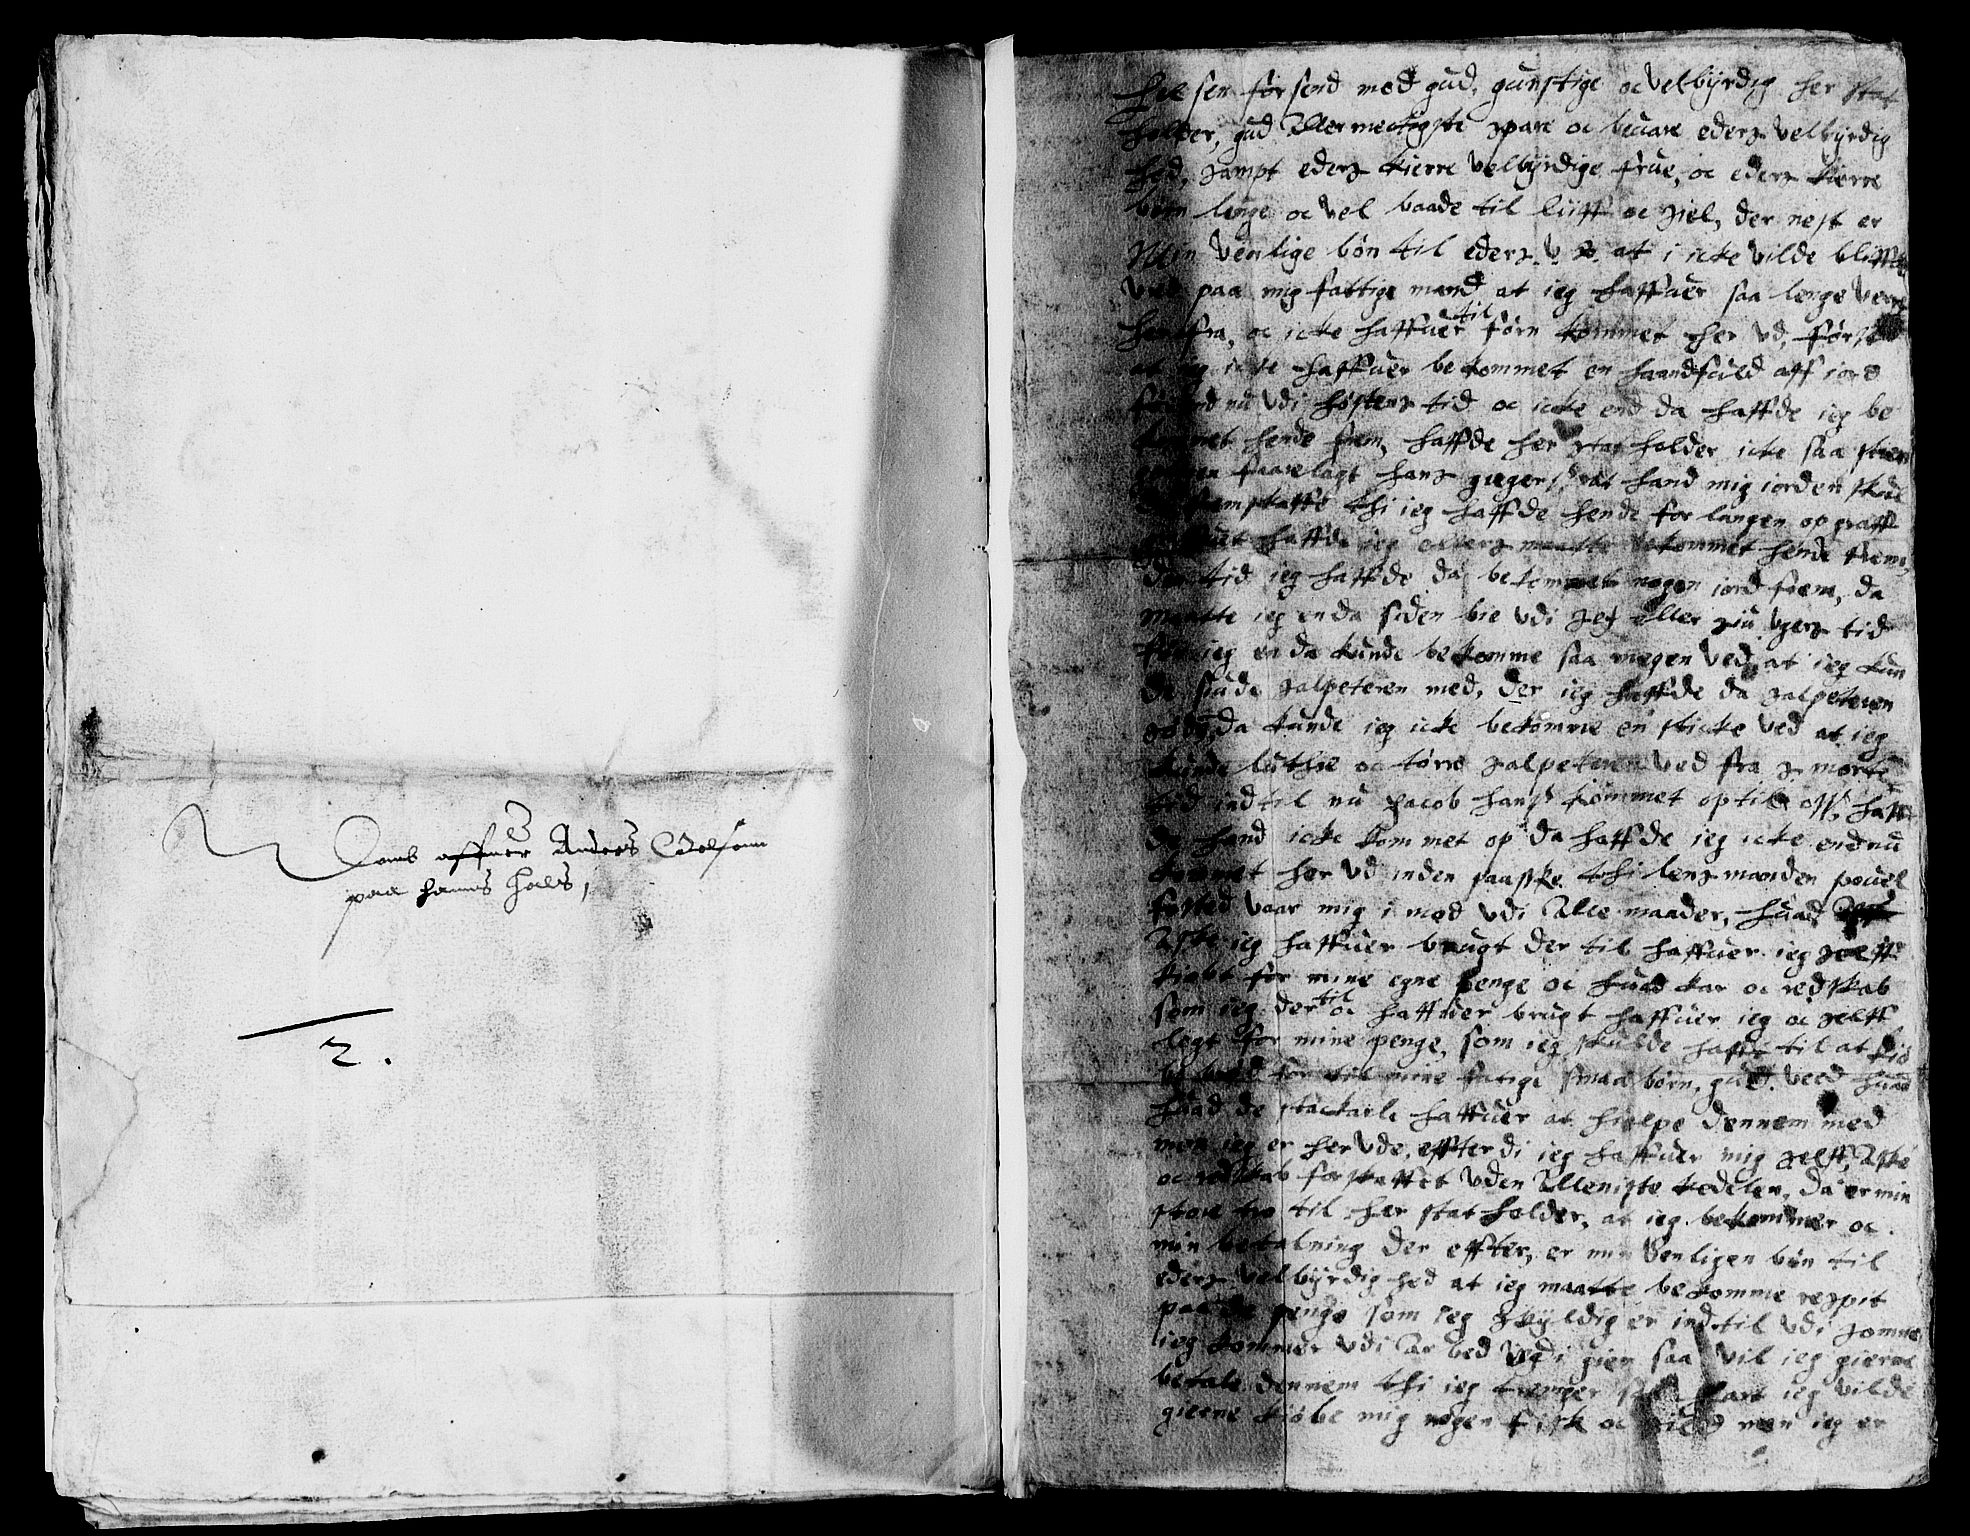 Domb offuer Anders Oelsønn
paa hanns hals,
2.
Helsen forsend med gud, gunstige oc velbÿrdig her stat
holder, gud Allermectigste spare oc beuare eders velbÿrdig
hed, sampt eders kierre velbÿrdige frue, oc eders kierre
børn lenge oc vel baade til liiff oc siel, der nest er
Min venlige bøn til eders v at i icke vilde bliffue
vred paa mig fattige mand at ieg haffuer saa lenge verre
hen fra, oc icke haffuer til førn kommet her ud, først
at ieg icke haffuer bekommet en haandfuld aff iord
førend nu vdi høstens tid oc icke end da haffde ieg be
kommet hende frem, haffde her stat holder icke saa
faarelagt hans at hand mig iorden skul
de fremskaffe thi ieg haffde hende for langen op graff
haffde ieg ellers maatte bekommet hende frem,
den tid ieg haffde da bekommet nogen iord frem, da
maatte ieg enda siden bie vdi sex eller siu vgers tid
før ieg en da kunde bekomme saa megen ved at ieg kun
de siude salpeteren med, der ieg haffde da salpeteren
da kunde ieg icke bekomme en sticke ved at ieg
kunde luthre oc tørre salpeteren ved fra
tid indtil nu Jacob hans kommet op til oss, haff
de hand icke kommet op da haffde ieg icke endnu
kommet her ud inden paaske thi lensmanden pouel
vaar mig i mod vdi Alle maader, huad
Aske ieg haffuer brugt der til haffuer ieg selff
kiøbt for mine egne penge oc huad kar oc redskab
som ieg der til oc haffuer brugt haffuer ieg oc selff
lagt for mine penge, som ieg skulde hafft til at kiø
be brød for til mine fatige smaa børn, gud veed huad
huad de stackarle haffuer at hielpe dennem med
men ieg er her vde, effterdi ieg haffuer mig selff, Aske
oc redskab forskaffet vden Alleniste kedelen, da er min
store tro til her stat holder, at ieg bekommer oc
min betalning der effter, er min venligen bøn til
eders velbÿrdighed at ieg maatte bekomme respit
paa de penge som ieg skÿldig er ind til vdi somme
ieg kommer vdi Arbed igien saa vil ieg gierne
betale dennem thi ieg trenger hart ieg vilde
gierne kiøbe mig nogen fisk oc men ieg er